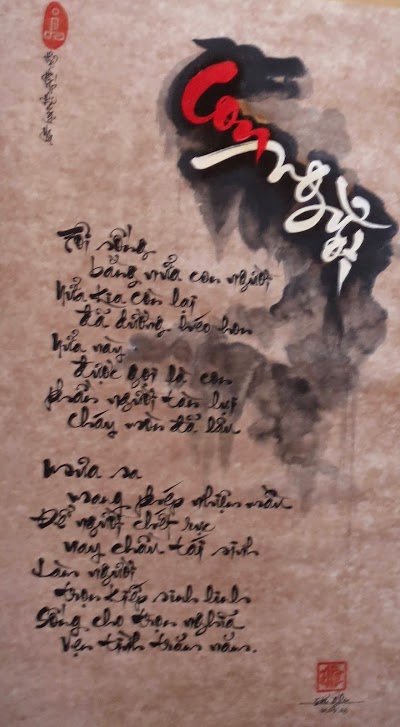 Con
người
Tôi sống
bằng nửa con người
Nửa kia còn lại
đã dường héo hon
Nửa này
được gọi là con
phần người tàn lụi
cháy mòn đã lâu
Mưa sa
mang phép nhiệm mầu
Để người chết rục
nay chầu tái sinh
Làm người
trọn kiếp sinh linh
Sống cho trọn nghĩa
vẹn tình trăm năm.